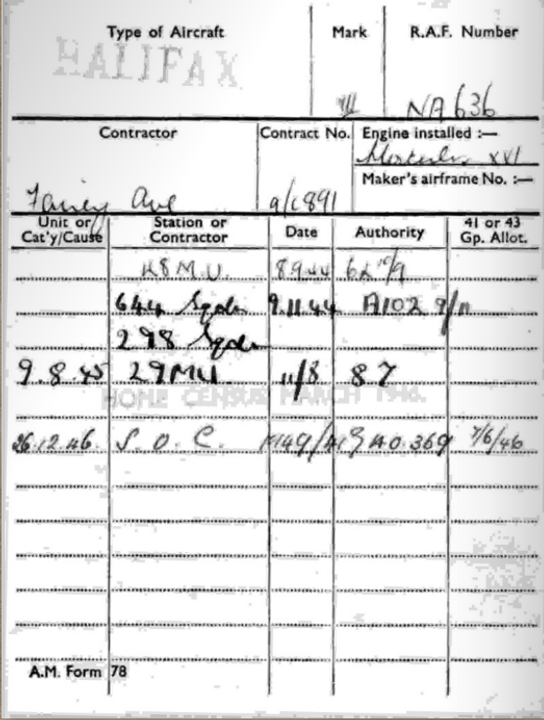 Type of Aircraft Mark R.A.F. Number
HALIFAX III NA636
Contractor Contract No. Engine installed :—
Hercules XVI
Maker's airframe No. :—
Fairey Ave a/c891
Unit or Cat'y/Cause Station or Contractor Date Authority 41 or 43 Gp. Allot.
48 M.U. 8.9.44
644 Sqdn 9.11.44 A102 9/11
298 Sqdn
9.8.45 29MU 11/8 87
HOME CENSUS MARCH 1946.
26.12.46. S. O. C. 40.369 7/6/46
A.M. Form 78